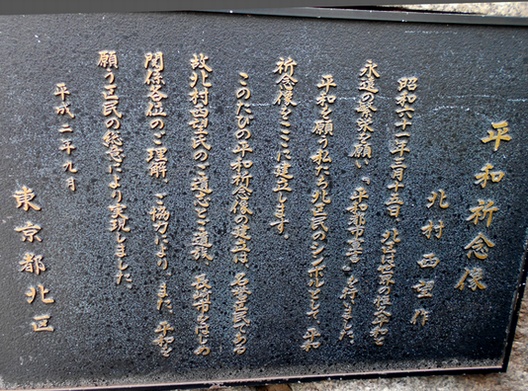 平和祈念像
北村西望作
昭和六十一年三月十五日、北区は世界の恒久平和と
永遠の繁栄を願い、「平和都市宣言」を行いました。
平和を願う私たち北区民のシンボルとして、平和
祈念像をここに建立します。
このたびの平和祈念像の建立は、名誉区民である
故北村西望氏のご遺志とご遺族、長崎市をはじめ
関係各位のご理解、ご協力により、また、平和を
願う区民の総意により実現しました。
平成二年九月
東京都北区